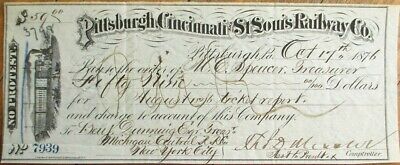 Pittsburgh, Cincinnati and St. Louis Railway Co.
$59.00
Pittsburgh, Pa. Oct 17th 1876
Pay to the order of W. C. Spencer, Treasurer
Fifty Nine Dollars
for August 1876 ticket report
and charge to account of this Company.
To
Michigan Central R.R.
New York City
Comptroller.
NO PROTEST
No 7939